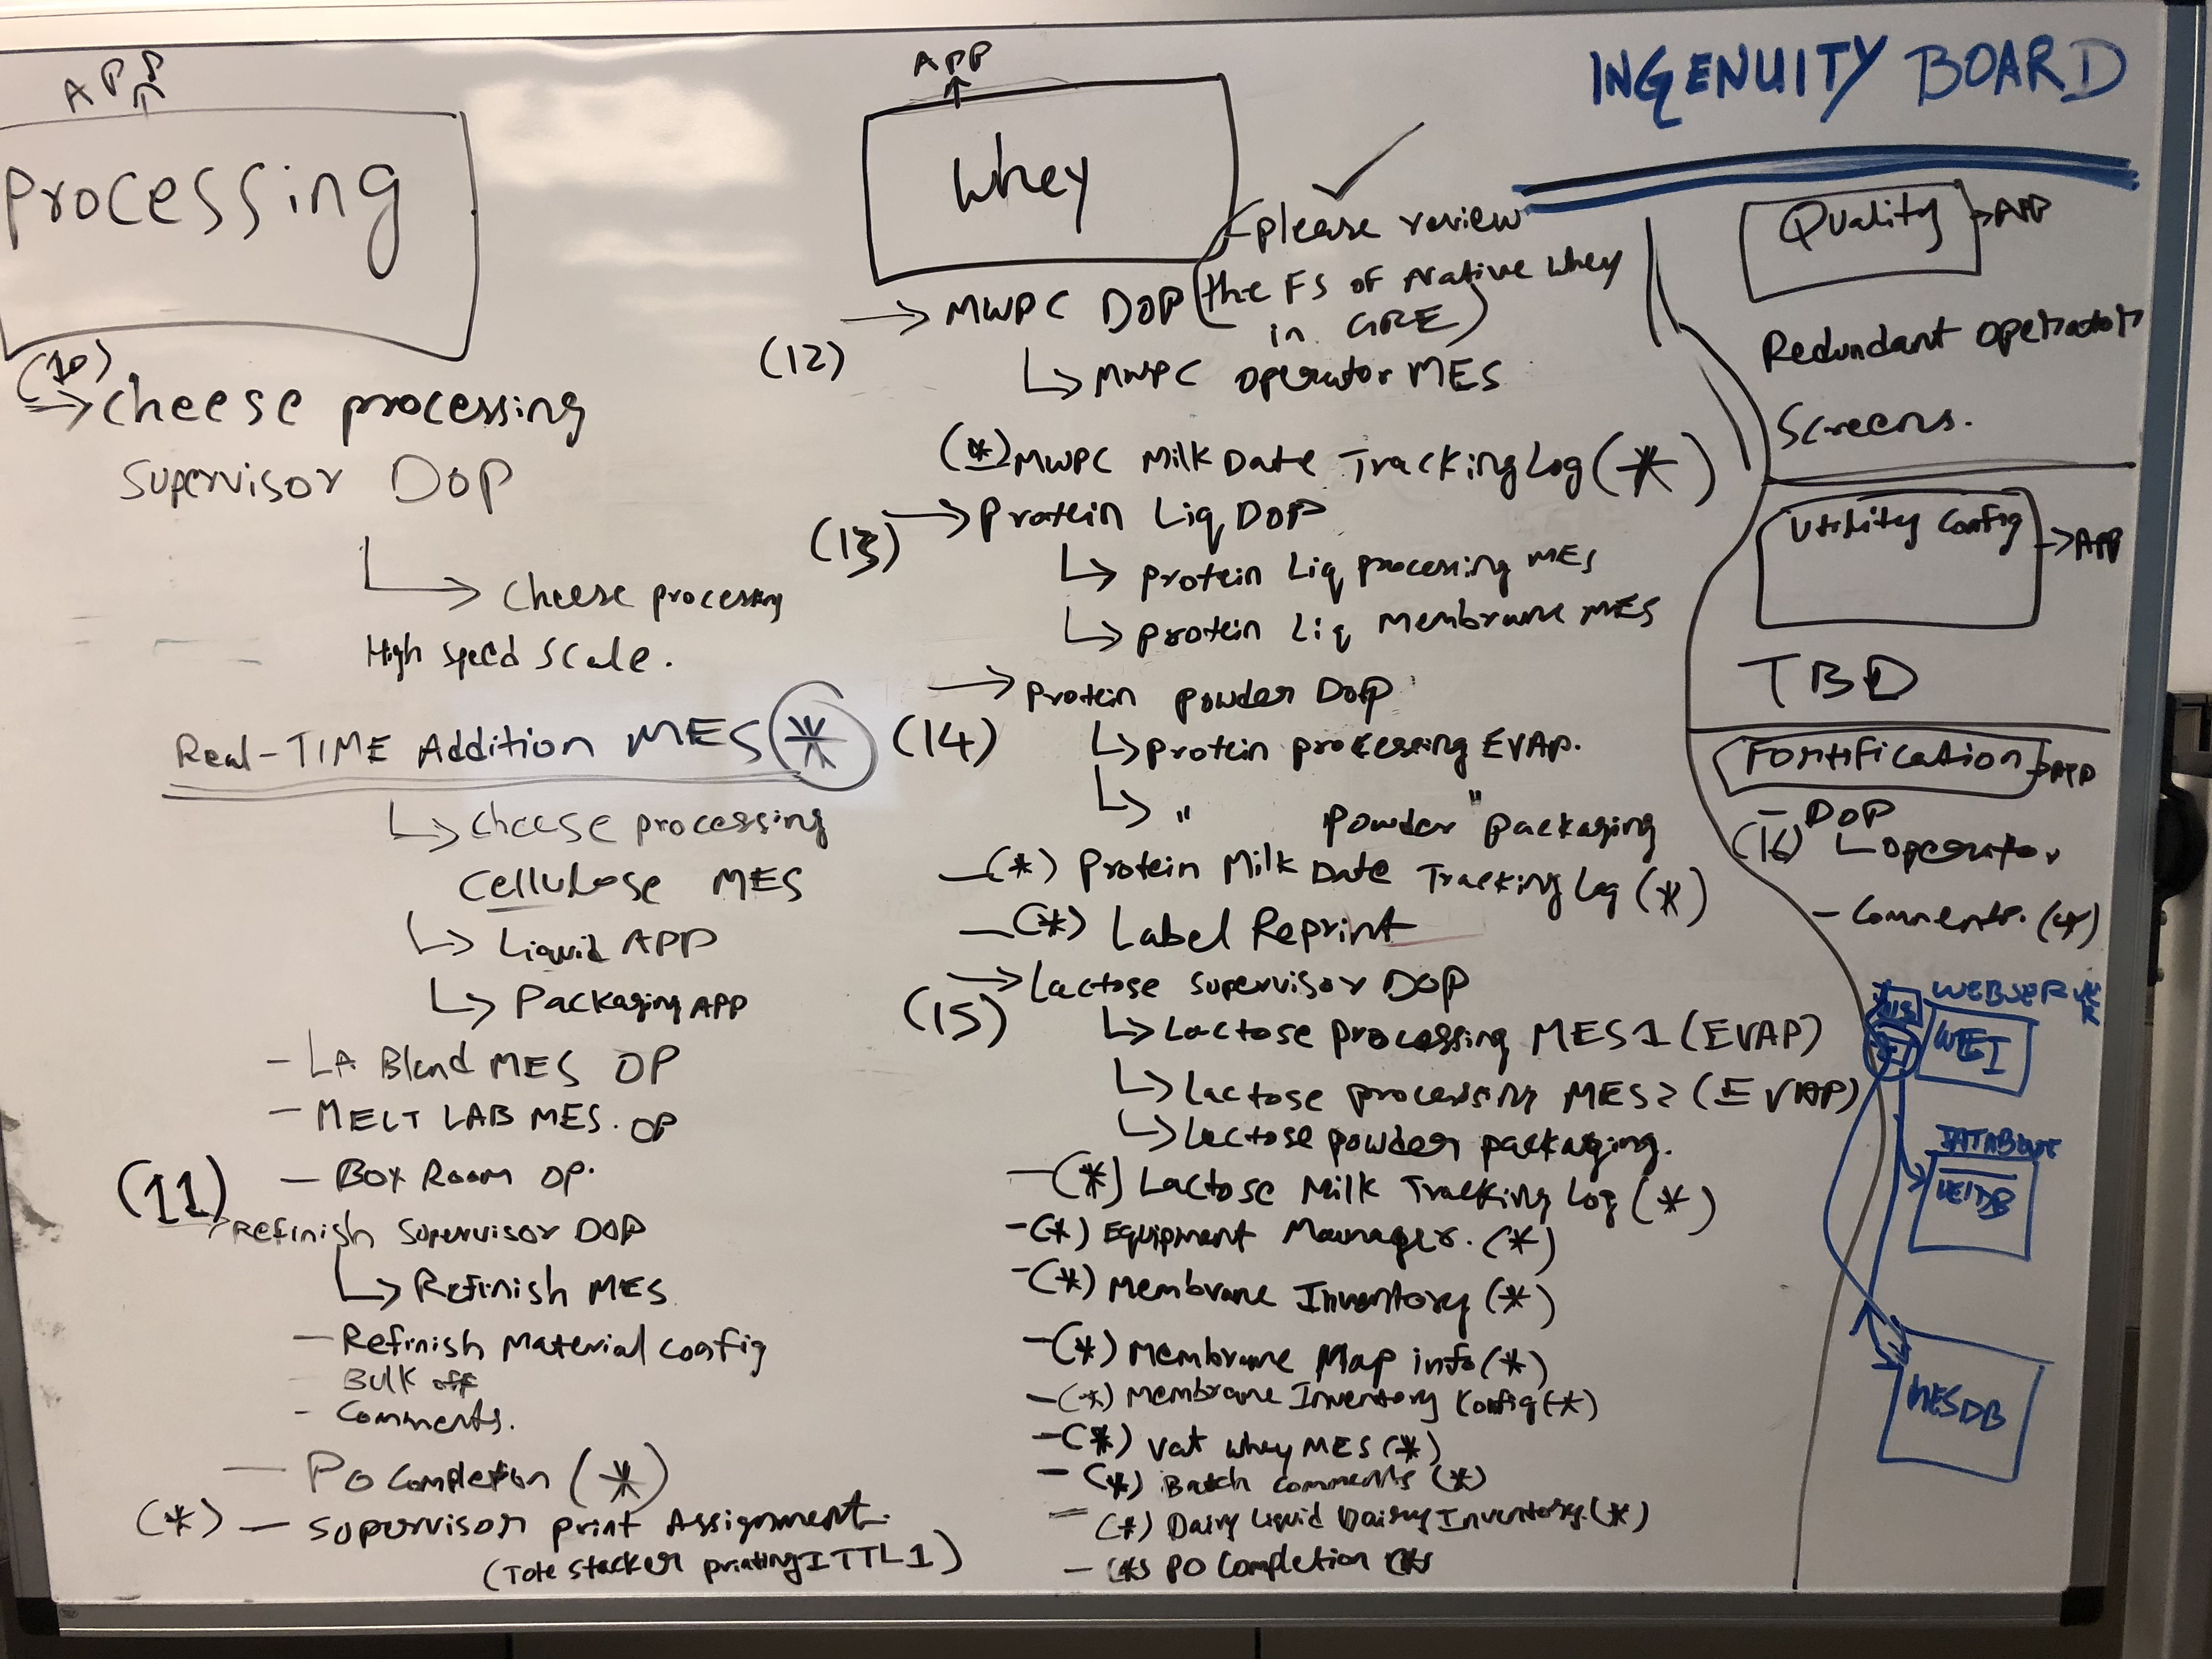 INGENUITY BOARD
APP
Processing
(10)
→ Cheese processing
Supervisor DOP
↳ Cheese processing
High Speed Scale.
Real-TIME Addition MES (*)
↳ Cheese processing
Cellulose MES
↳ Liquid APP
↳ Packaging APP
- LA Blend MES OP
- MELT LAB MES. OP
- BOX ROOM OP.
(11)
Refinish Supervisor DOP
↳ Refinish MES
- Refinish Material Config
- Bulk off
- Comments.
- PO Completion (*)
(*) - Supervisor print Assignment.
(Tote stacker printing ITTL1)
APP
Whey
(please review
the FS of Native Whey
in GRE)
(12) → MWPC DOP
↳ MWPC operator MES
(*) MWPC Milk Date Tracking Log (*)
(13) → Protein Liq DOP
↳ protein Liq processing MES
↳ protein Liq Membrane MES
(14) → Protein powder DOP
↳ protein processing EVAP.
↳ " powder" packaging
- (*) Protein Milk Date Tracking Log (*)
- (*) Label Reprint
(15) → Lactose Supervisor DOP
↳ Lactose processing MES1 (EVAP)
↳ Lactose processing MES2 (EVAP)
↳ Lactose powder packaging.
- (*) Lactose Milk Tracking Log (*)
- (*) Equipment Manager. (*)
- (*) Membrane Inventory (*)
- (*) Membrane Map info (*)
- (*) Membrane Inventory Config (*)
- (*) Vat Whey MES (*)
- (*) Batch Comments (*)
- (*) Dairy Liquid Dairy Inventory. (*)
- (*) PO Completion (*)
Quality → APP
Redundant Operator
Screens.
Utility Config → APP
TBD
Fortification → APP
- DOP
(16) ↳ operator
- Comments. (*)
WEBSERVER
WEI
DATABASE
WEIDB
MESDB